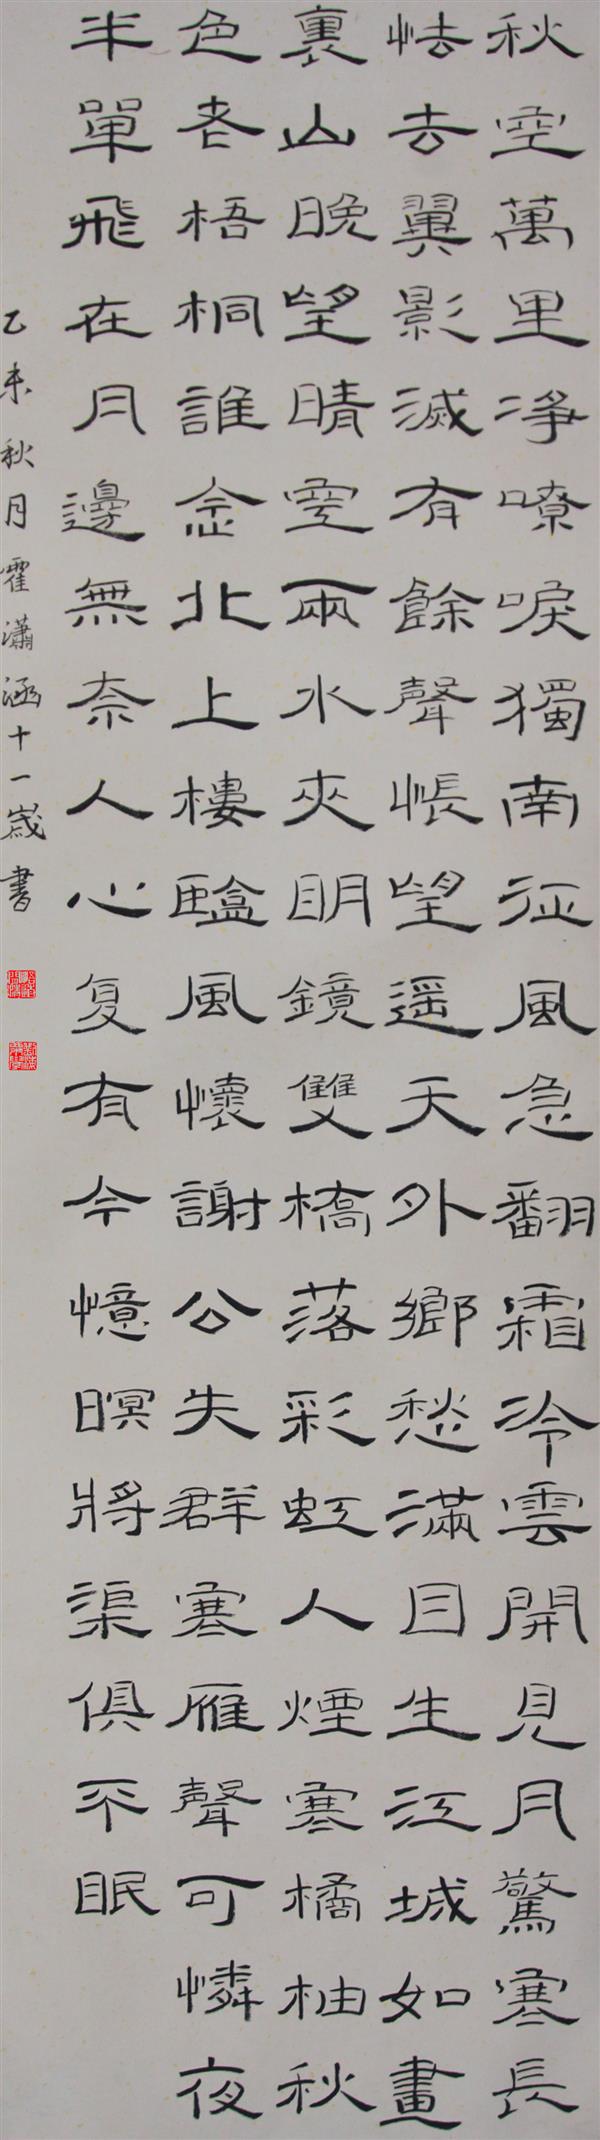 秋空萬里凈嘹唳獨南征風急翻霜冷雲開見月驚寒長
怯去翼影滅有餘聲悵望遥天外鄉愁滿目生江城如畫
裏山晚望晴空兩水夾明鏡雙橋落彩虹人煙寒橘柚秋
色老梧桐誰念北上樓臨風懷謝公失群寒雁聲可憐夜
半單飛在月邊無奈人心复有今憶暝將渠俱不眠
乙未秋月霍瀟涵十一歲書